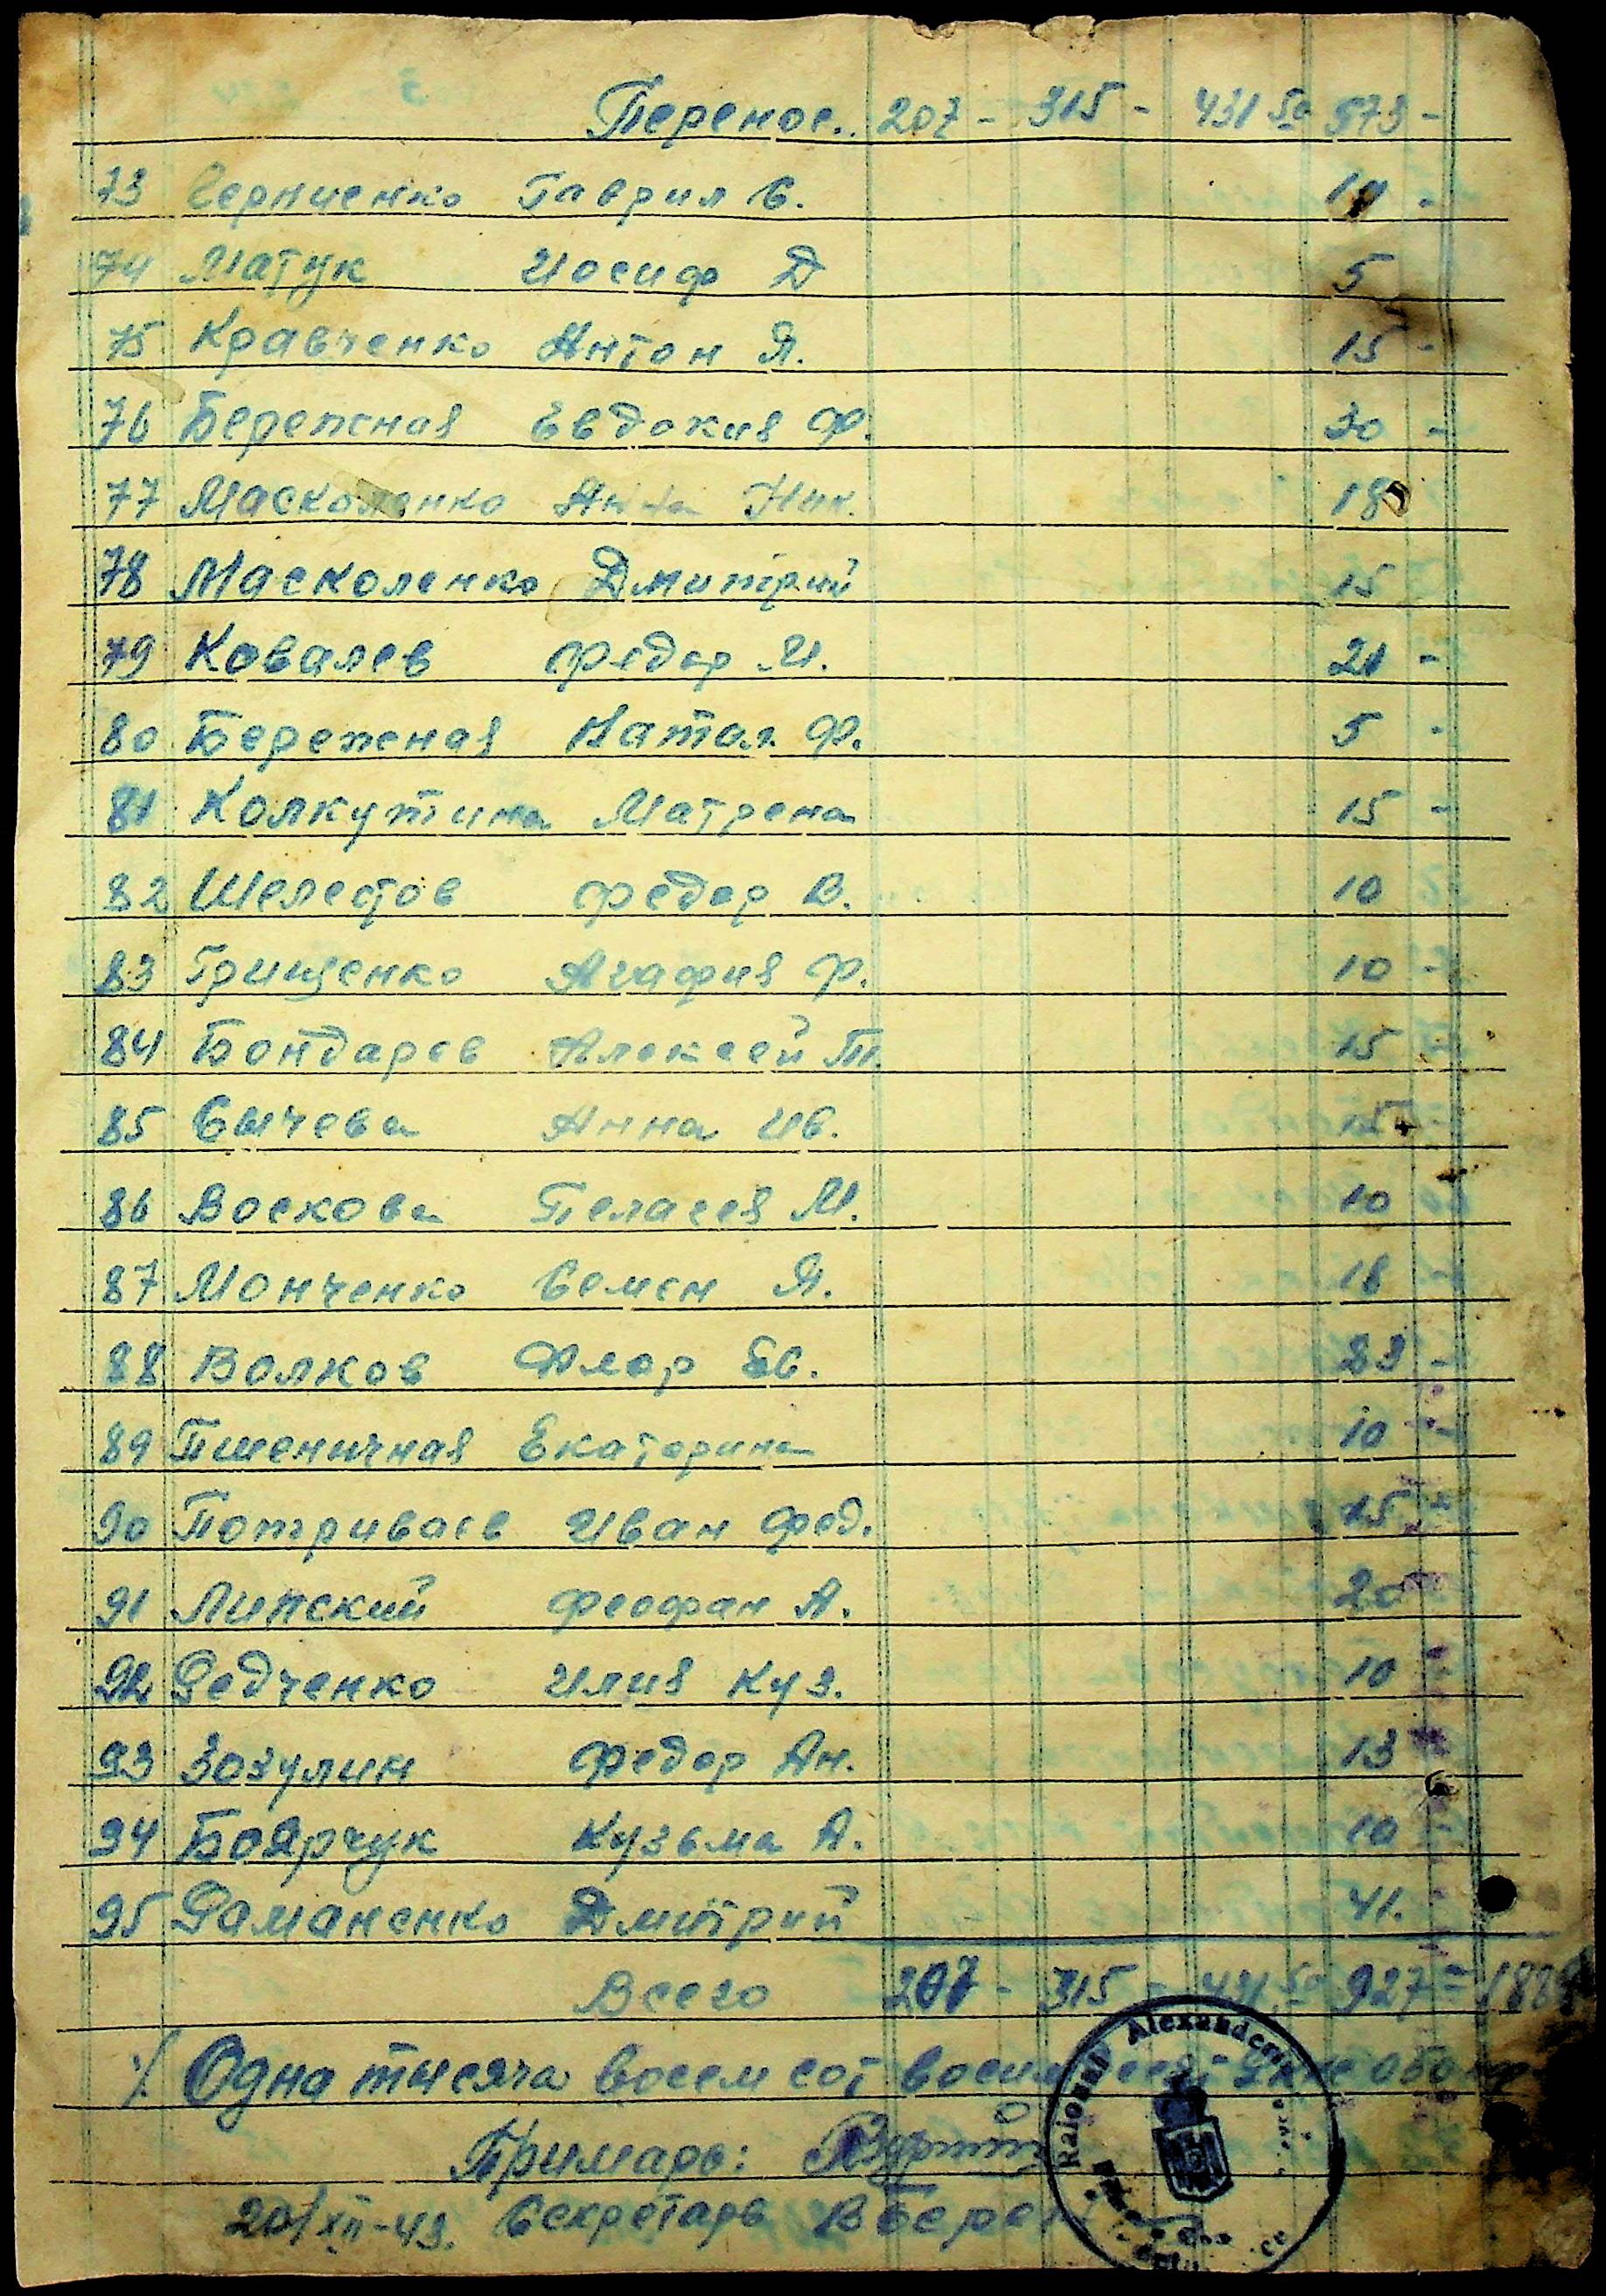 Перенос.. 207 - 315 - 431 50 573 -
73 Черниенко Гаврил С. 10 -
74 Матук Иосиф Д 5
75 Кравченко Антон Я. 15 -
76 Бережная Евдокия Ф. 30 -
77 Масколенко Анна Ник. 18
78 Масколенко Дмитрий 15
79 Ковалев Федор И. 21 -
80 Бережная Натал. Ф. 5 -
81 Колкутина Матрена 15 -
82 Шелестов Федор В. 10
83 Грищенко Агафия Ф. 10 -
84 Бондарев Алексей Т. 15
85 Сычева Анна Ив. 15
86 Воскова Пеласея М. 10
87 Монченко Семен Я. 18
88 Волков Флор Ев. 23 -
89 Пшеничная Екатерина 10 -
90 Потриваев Иван Фед. 15 -
91 Липский Феофан А. 20
92 Редченко Илия Куз. 10
93 Зозулин Федор Ан. 13
94 Боярчук Кузьма А. 10
95 Романенко Дмитрий 41.
Всего 207 - 315 - 431 50 927 =
Одна тысяча восем сот
Примарь:
20/XII-43. Секретарь В Береж
Raionul Alexander